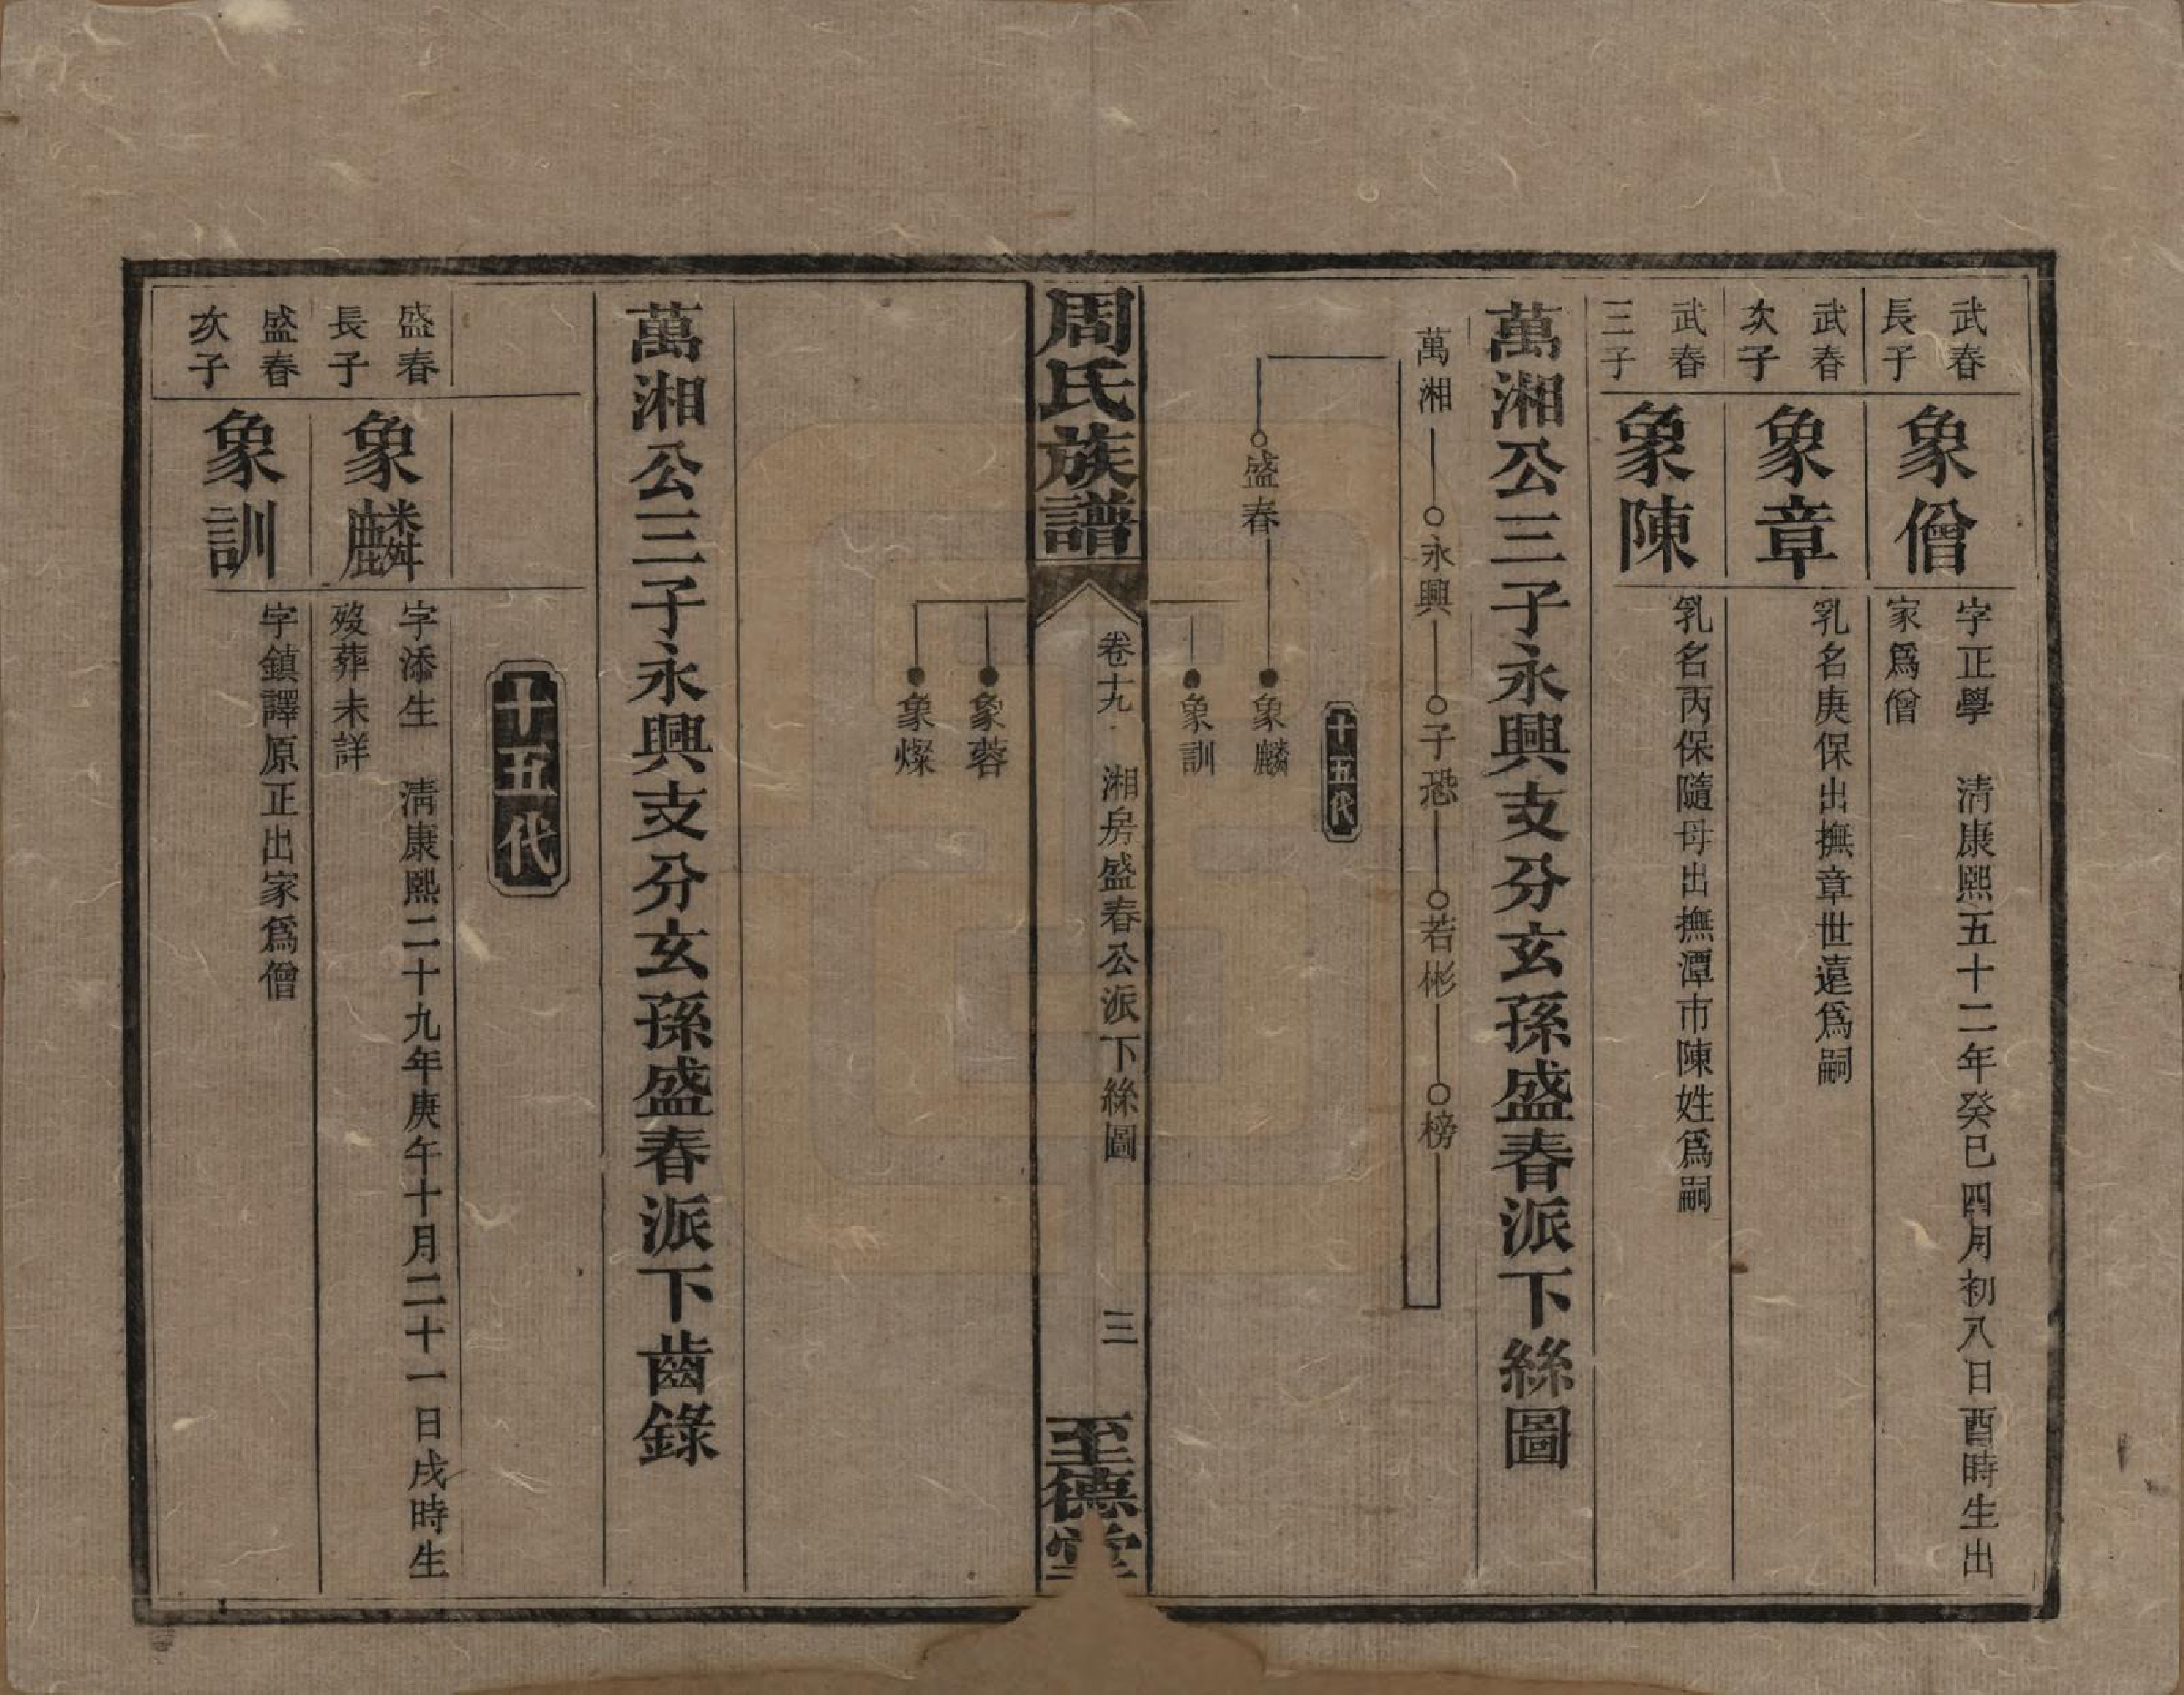 武春
長子
象僧
字正學　清康熙五十二年癸巳四月初八日酉時生出
家爲僧
武春
次子
象章
乳名庚保出撫章世遠爲嗣
武春
三子
象陳
乳名丙保隨母出撫潭市陳姓爲嗣
萬湘公三子永興支分玄孫盛春派下絲圖
萬湘
永興
子恐
若彬
榜
十五代
盛春
象麟
象訓
周氏族譜
卷十九　湘房盛春公派下絲圖
三
至德堂
象蓉
象燦
萬湘公三子永興支分玄孫盛春派下齒錄
十五代
盛春
長子
象麟
字添生　清康熙二十九年庚午十月二十一日戌時生
歿葬未詳
盛春
次子
象訓
字鎮譯原正出家爲僧